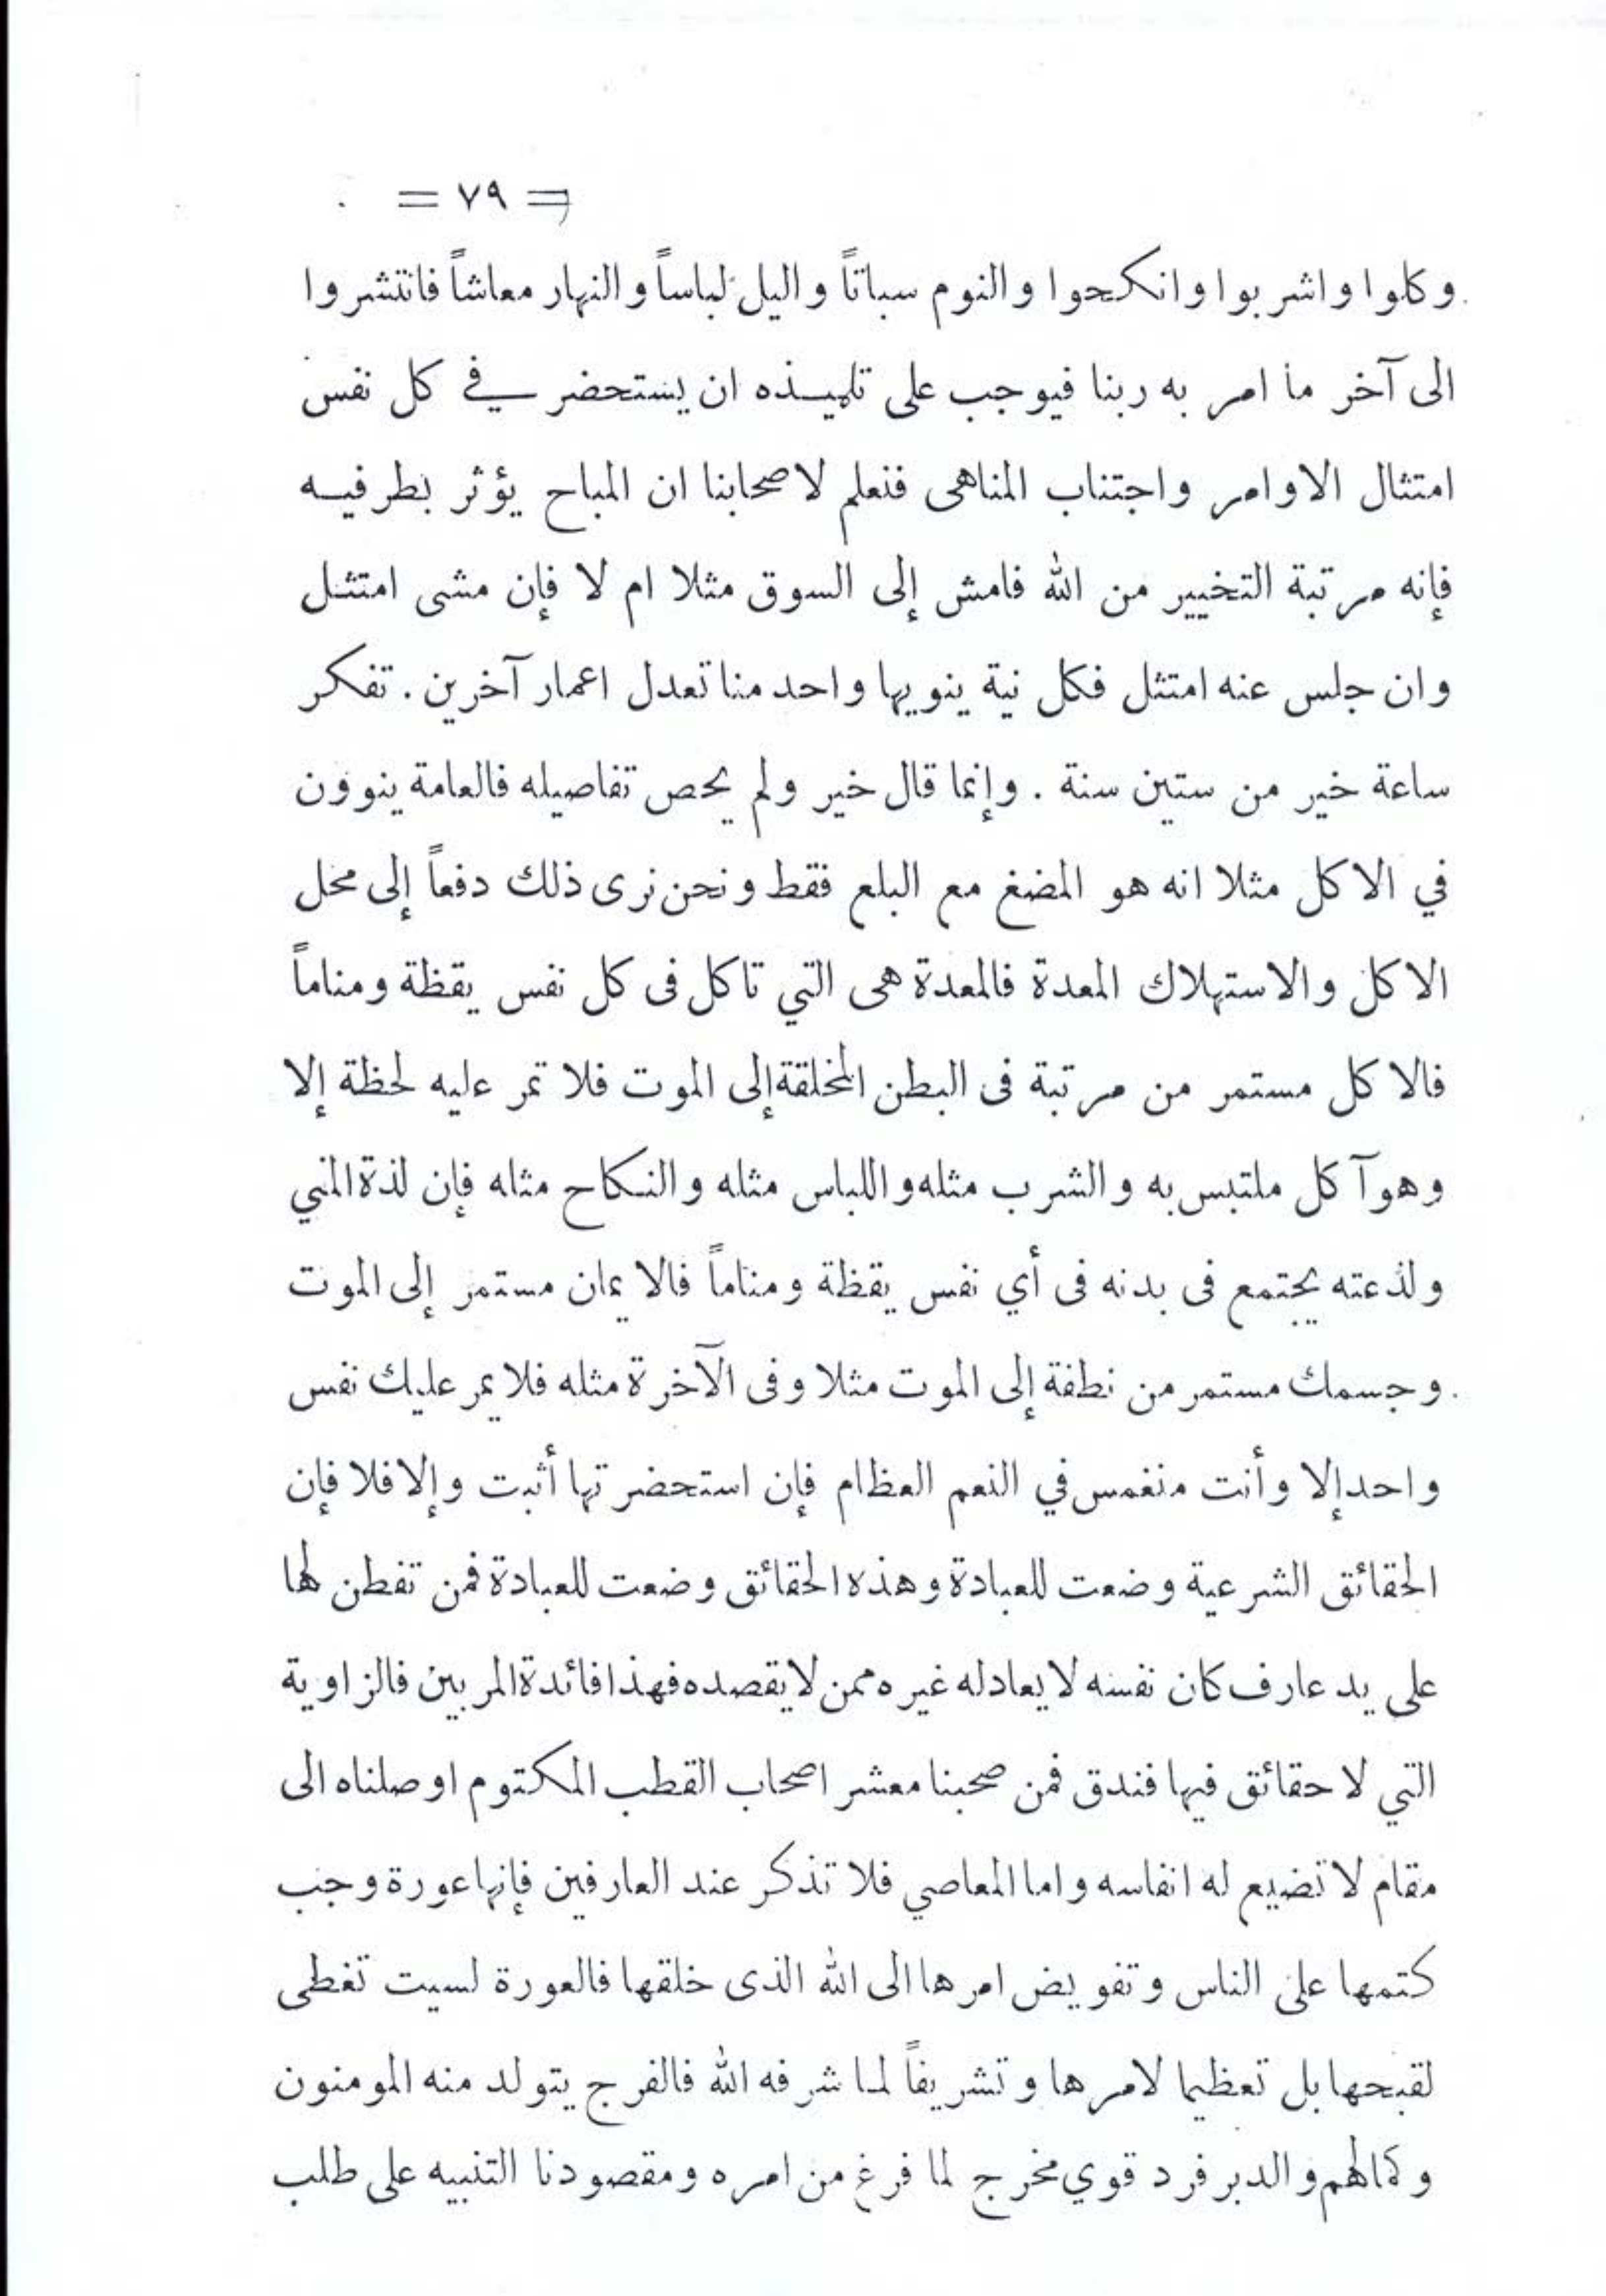 = ٧٩ =
وكلوا واشربوا وانكحوا والنوم سباتاً واليل لباساً والنهار معاشاً فانتشروا
الى آخر ما امر به ربنا فيوجب على تلميذه ان يستحضر في كل نفس
امتثال الاوامر واجتناب المناهى فنعلم لاصحابنا ان المباح يؤثر بطرفيه
فإنه مرتبة التخيير من الله فامش إلى السوق مثلا ام لا فإن مشى امتثل
وان جلس عنه امتثل فكل نية ينويها واحد منا تعدل اعمار آخرين . تفكر
ساعة خير من ستين سنة . وإنما قال خير ولم يحص تفاصيله فالعامة ينوون
في الاكل مثلا انه هو المضغ مع البلع فقط ونحن نرى ذلك دفعاً إلى محل
الاكل والاستهلاك المعدة فالمعدة هى التي تاكل فى كل نفس يقظة ومناماً
فالاكل مستمر من مرتبة فى البطن المخلقة إلى الموت فلا تمر عليه لحظة إلا
وهو آكل ملتبس به والشرب مثله واللباس مثله والنكاح مثله فإن لذة المني
ولذعته يجتمع فى بدنه فى أي نفس يقظة ومناماً فالايمان مستمر إلى الموت
وجسمك مستمر من نطفة إلى الموت مثلا وفى الآخرة مثله فلا يمر عليك نفس
واحد إلا وأنت منغمس في النعم العظام فإن استحضرتها أثبت وإلا فلا فإن
الحقائق الشرعية وضعت للعبادة وهذه الحقائق وضعت للعبادة فمن تفطن لها
على يد عارف كان نفسه لا يعادله غيره ممن لا يقصده فهذا فائدة المربين فالزاوية
التي لا حقائق فيها فندق فمن صحبنا معشر اصحاب القطب المكتوم اوصلناه الى
مقام لا تضيع له انفاسه واما المعاصي فلا تذكر عند العارفين فإنها عورة وجب
كتمها على الناس وتفويض امرها الى الله الذى خلقها فالعورة لسيت تغطى
لقبحها بل تعظيما لامرها وتشريفاً لما شرفه الله فالفرج يتولد منه المومنون
وكمالهم والدبر فرد قوي مخرج لما فرغ من امره ومقصودنا التنبيه على طلب